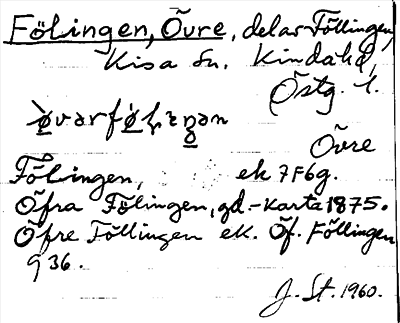 Fölingen, Övre, delar Föllingen,
Kisa sn. Kinda hd,
Östg. l.
Övre
Fölingen, ek 7F6g.
Öfra Fölingen, gd.-karta 1875.
Öfre Föllingen ek. Öf. Föllingen
936.
J. St. 1960.